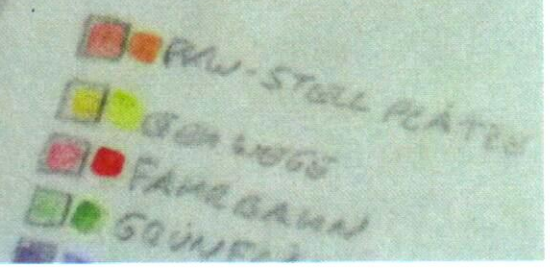 PKW-STELLPLÄTZE
GEHWEGE
FAHRBAHN